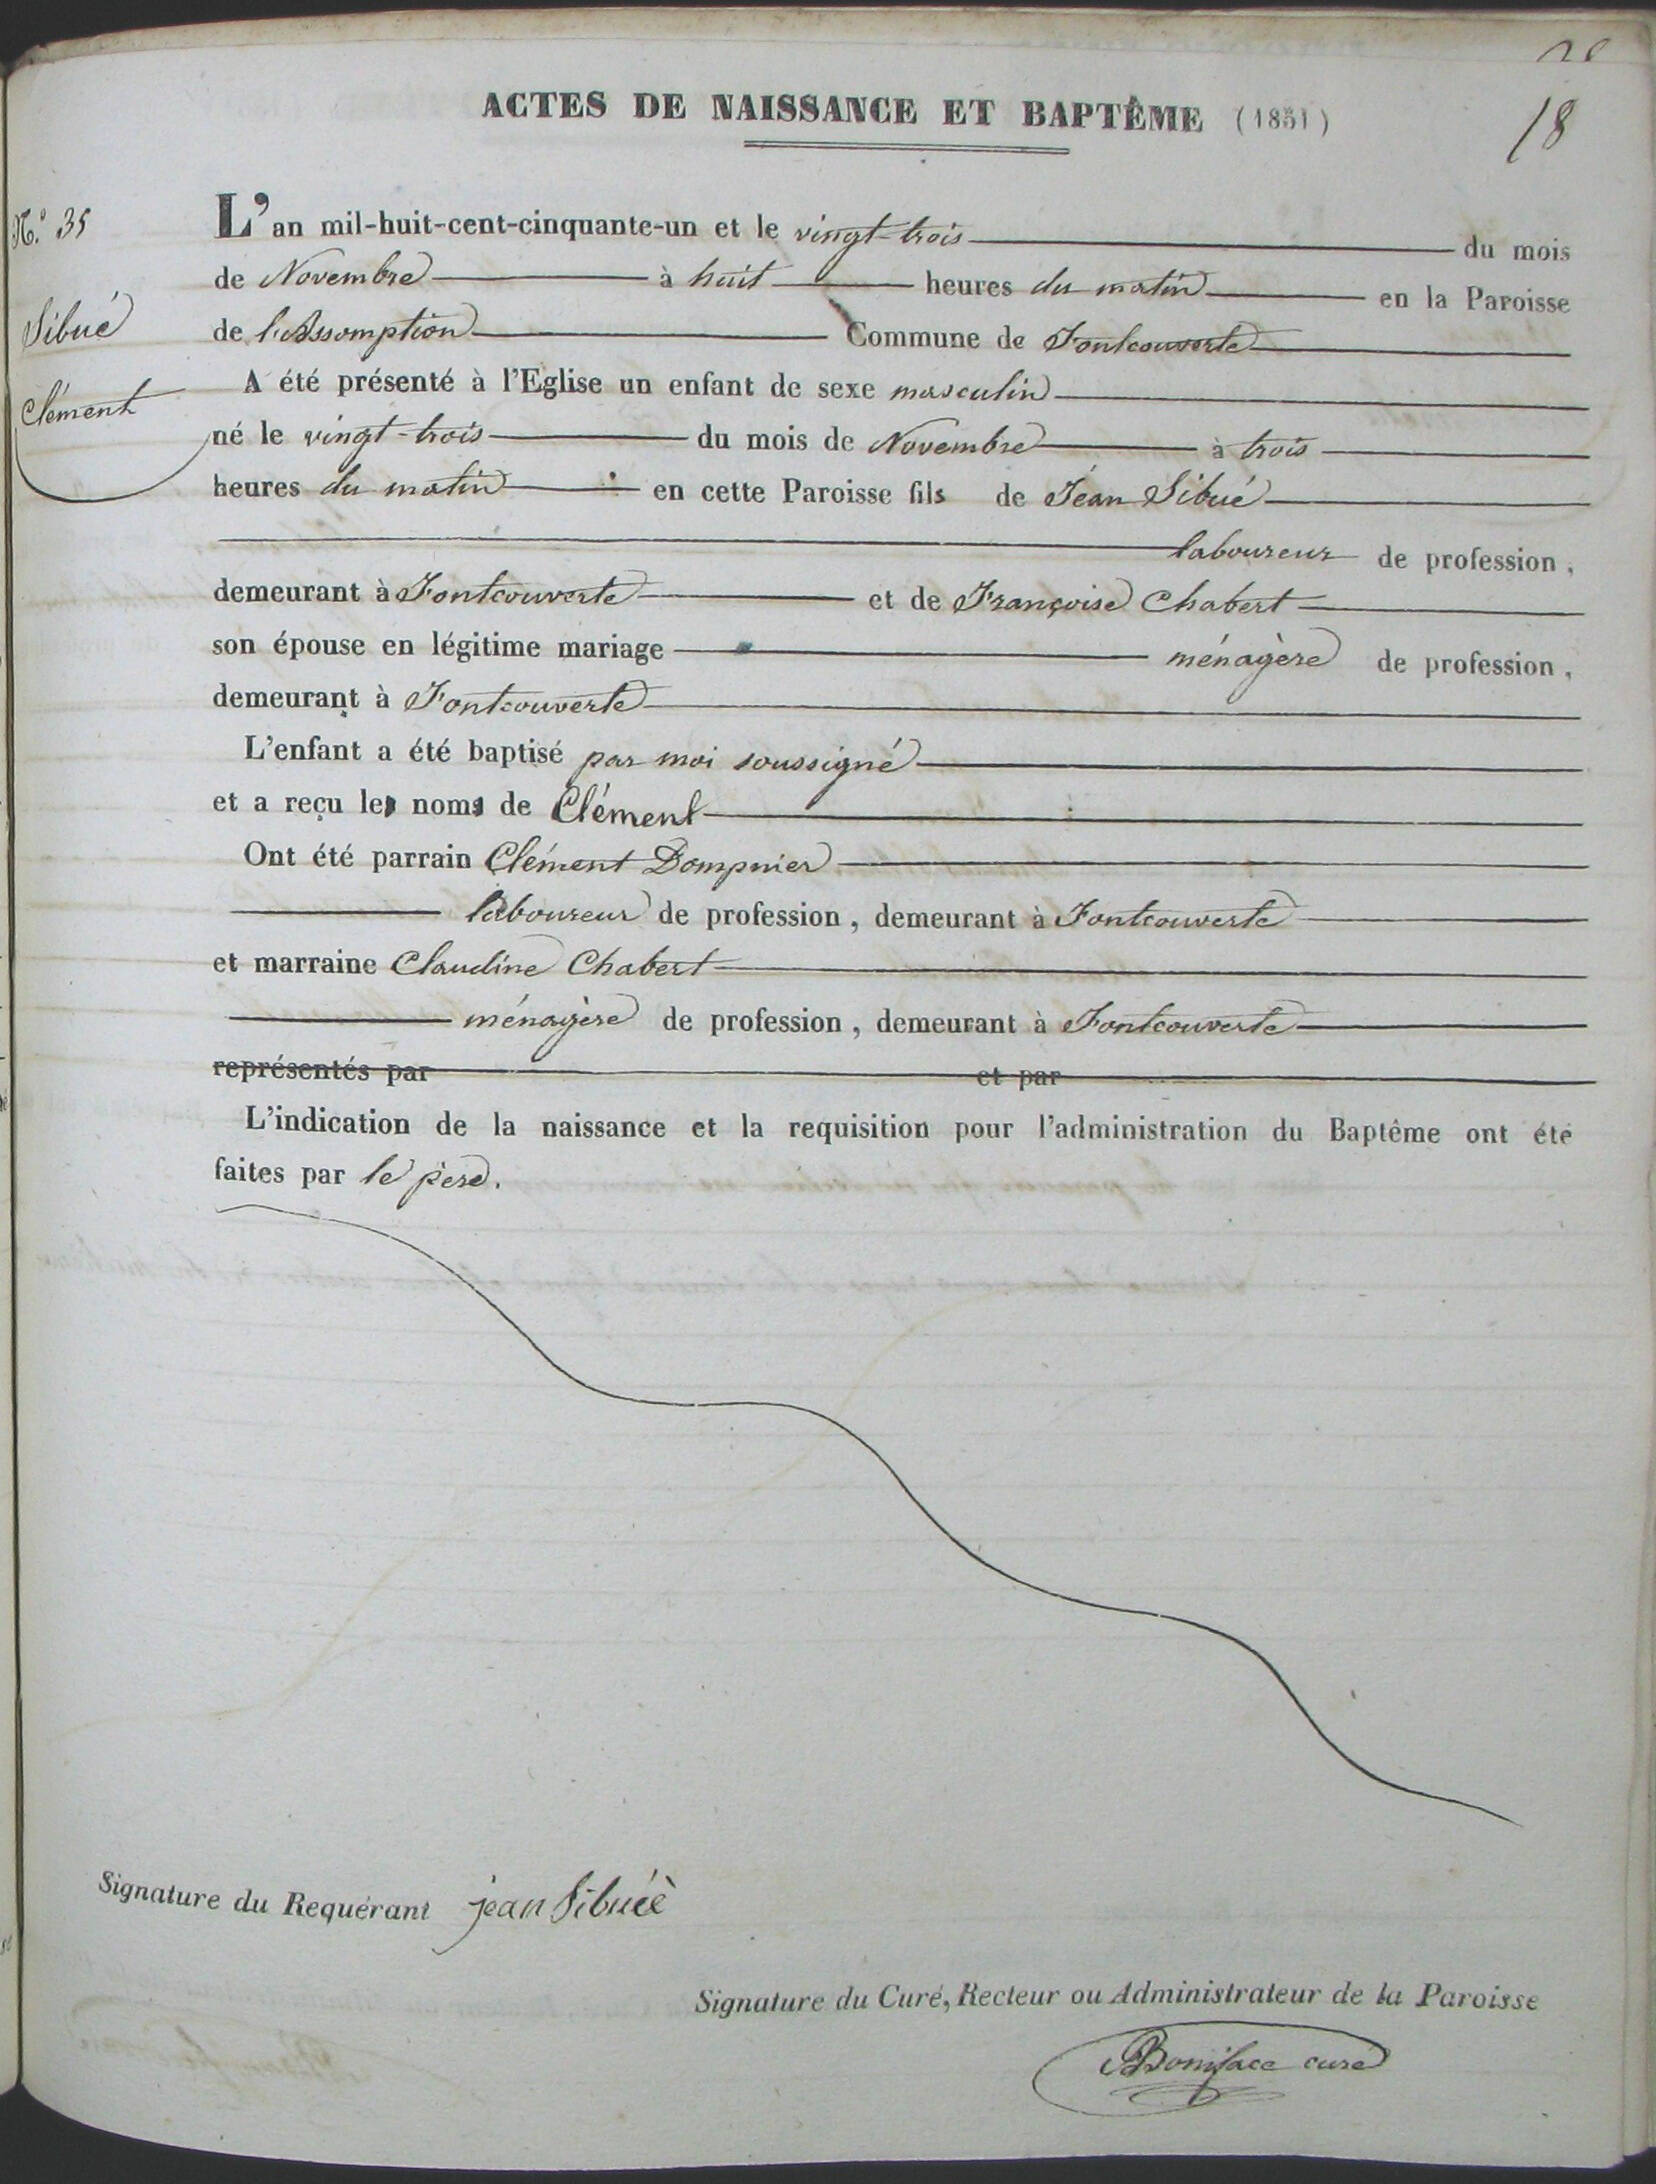 ACTES DE NAISSANCE ET BAPTÊME (1851)
18
N.º 35
Sibué
Clément
L'an mil-huit-cent-cinquante-un et le vingt-trois du mois
de Novembre à huit heures du matin en la Paroisse
de l'Assomption Commune de Fontcouverte
A été présenté à l'Eglise un enfant de sexe masculin
né le vingt-trois du mois de Novembre à trois
heures du matin en cette Paroisse fils de Jéan Sibué
laboureur de profession,
demeurant à Fontcouverte et de Françoise Chabert
son épouse en légitime mariage ménagère de profession,
demeurant à Fontcouverte
L'enfant a été baptisé par moi soussigné
et a reçu les noms de Clément
Ont été parrain Clément Dompnier
laboureur de profession, demeurant à Fontcouverte
et marraine Claudine Chabert
ménagère de profession, demeurant à Fontcouverte
représentés par et par
L'indication de la naissance et la requisition pour l'administration du Baptême ont été
faites par le père.
Signature du Requérant jean Sibuéè
Signature du Curé, Recteur ou Administrateur de la Paroisse
Boniface curé